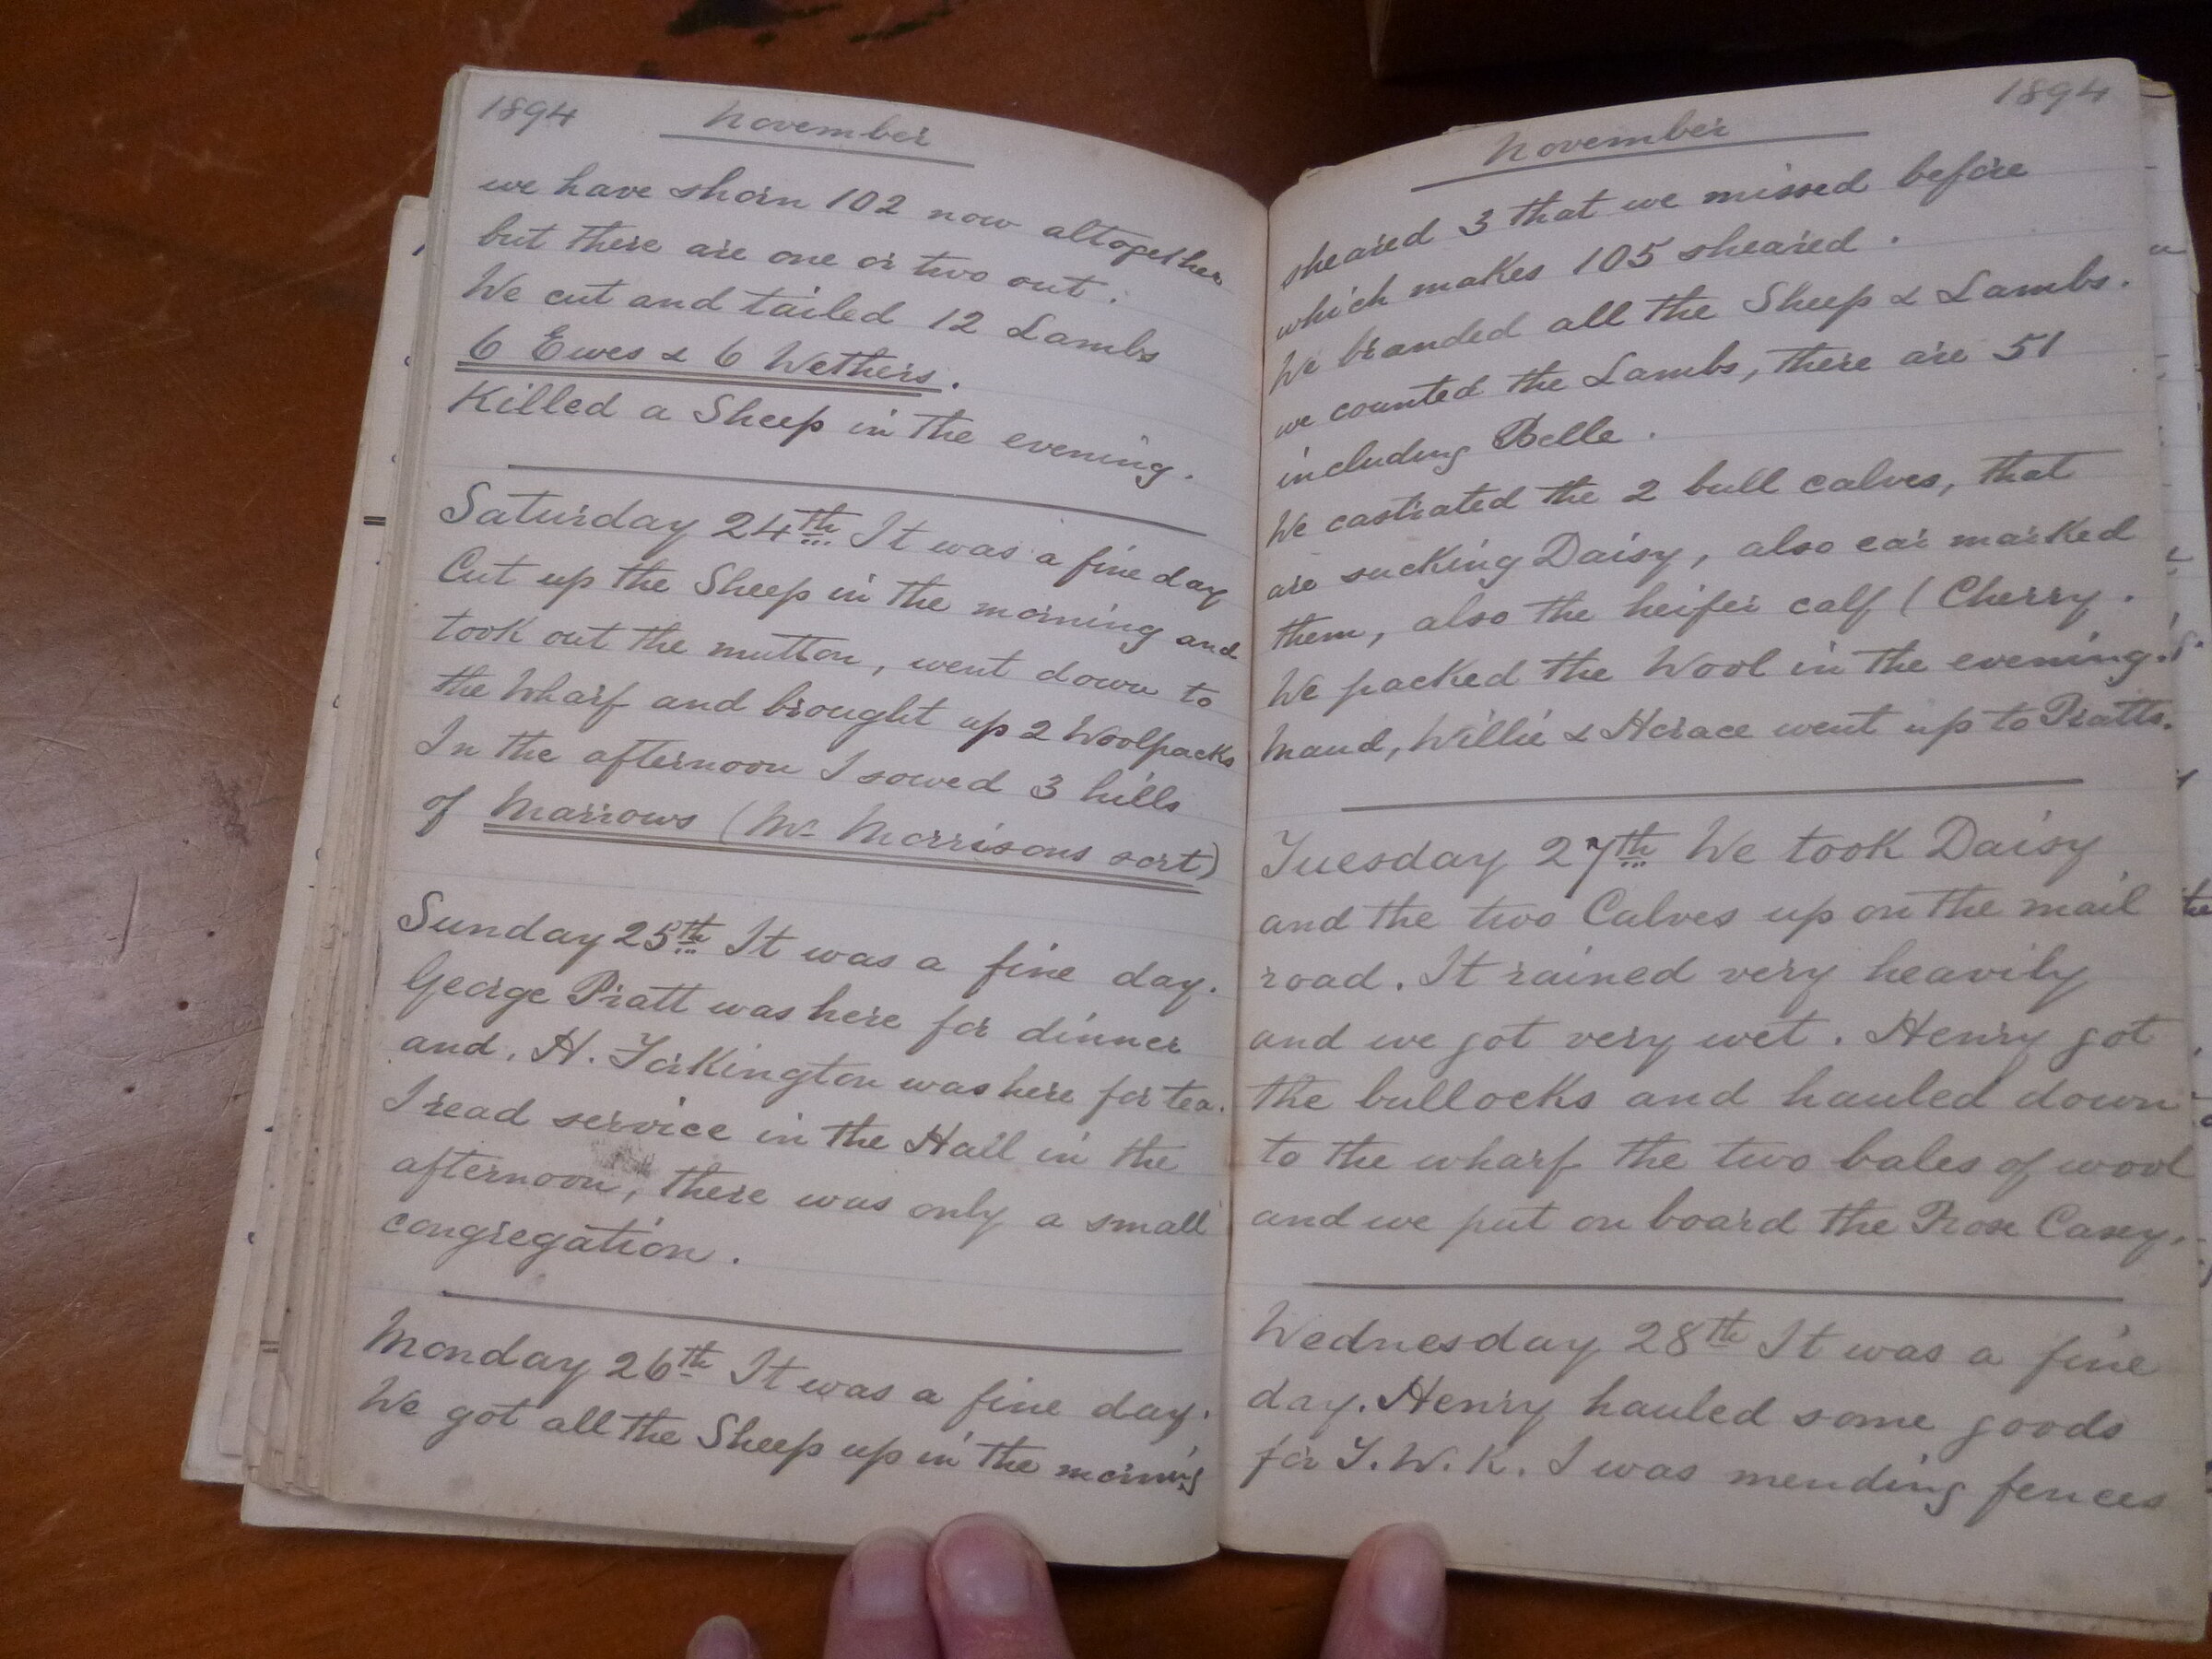 1894 November
we have shorn 102 now altogether
but there are one or two out.
We cut and tailed 12 Lambs
6 Ewes & 6 Wethers.
Killed a Sheep in the evening.
Saturday 24th It was a fine day
Cut up the Sheep in the morning and
took out the mutton, went down to
the Wharf and brought up 2 Woolpacks
In the afternoon I sowed 3 hills
of Marrows (Mr Morrisons sort)
Sunday 25th It was a fine day.
George Pratt was here for dinner
and. H. Torkington was here for tea.
I read service in the Hall in the
afternoon, there was only a small
congregation.
Monday 26th It was a fine day.
We got all the Sheep up in the morning
November 1894
sheared 3 that we missed before
which makes 105 sheared.
We branded all the Sheep & Lambs.
we counted the Lambs, there are 51
including Belle.
We castrated the 2 bull calves, that
are sucking Daisy, also ear marked
them, also the heifer calf (Cherry.
We packed the Wool in the evening.
Maud, Willie & Horace went up to Pratts.
Tuesday 27th We took Daisy
and the two Calves up on the mail
road. It rained very heavily
and we got very wet. Henry got
the bullocks and hauled down
to the wharf the two bales of wool
and we put on board the Rose Casey.
Wednesday 28th It was a fine
day. Henry hauled some goods
for T. W. K. I was mending fences